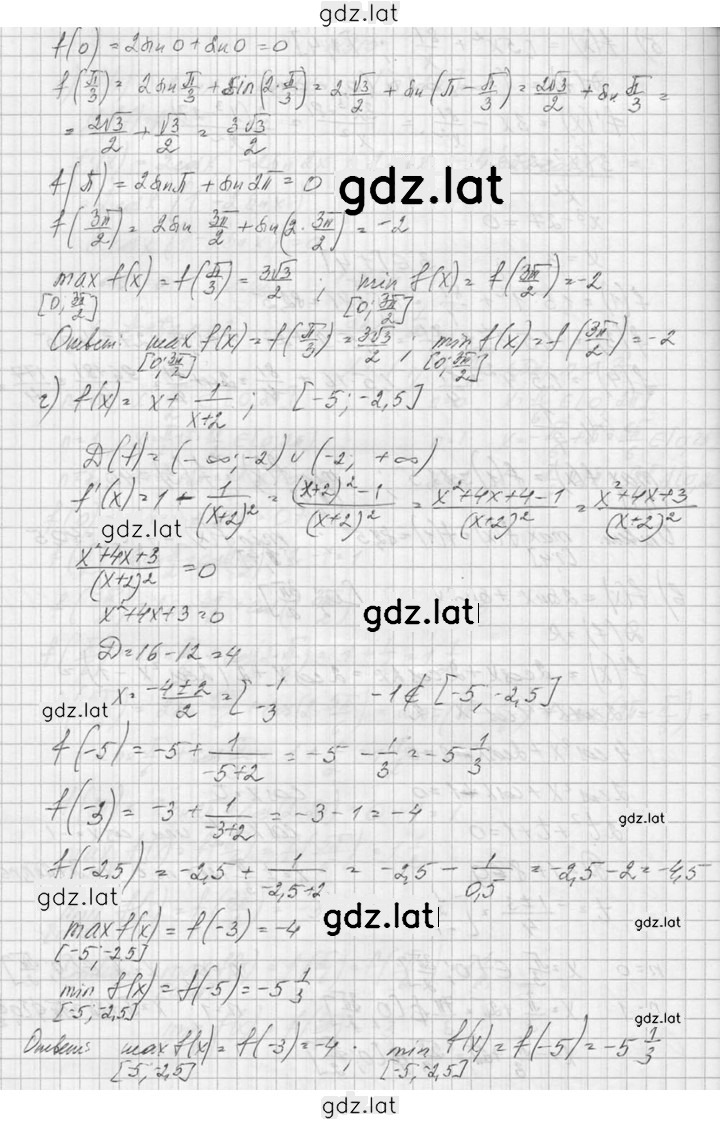 gdz.lat
f(0) = 2sin0 + sin0 = 0
f(π/3) = 2sin π/3 + sin(2·π/3) = 2·√3/2 + sin(π − π/3) = 2√3/2 + sin π/3 =
= 2√3/2 + √3/2 = 3√3/2
f(π) = 2sinπ + sin2π = 0 gdz.lat
f(3π/2) = 2sin 3π/2 + sin(2·3π/2) = −2
max f(x) = f(π/3) = 3√3/2 ; min f(x) = f(3π/2) = −2
[0; 3π/2] [0; 3π/2]
Ответ: max f(x) = f(π/3) = 3√3/2 ; min f(x) = f(3π/2) = −2
[0; 3π/2] [0; 3π/2]
г) f(x) = x + 1/(x+2) ; [-5; -2,5]
D(f) = (−∞; −2) ∪ (−2; +∞)
f'(x) = 1 − 1/(x+2)² = ((x+2)² − 1)/(x+2)² = (x²+4x+4−1)/(x+2)² = (x²+4x+3)/(x+2)²
gdz.lat
(x²+4x+3)/(x+2)² = 0
x²+4x+3 = 0 gdz.lat
D = 16 − 12 = 4
x = (−4 ± 2)/2 = [ −1 −3 −1 ∉ [−5; −2,5]
gdz.lat
f(−5) = −5 + 1/(−5+2) = −5 − 1/3 = −5 1/3
f(−3) = −3 + 1/(−3+2) = −3 − 1 = −4 gdz.lat
f(−2,5) = −2,5 + 1/(−2,5+2) = −2,5 − 1/0,5 = −2,5 − 2 = −4,5
gdz.lat
max f(x) = f(−3) = −4 gdz.lat gdz.lat
[−5; −2,5]
min f(x) = f(−5) = −5 1/3
[−5; −2,5]
gdz.lat
Ответ: max f(x) = f(−3) = −4 ; min f(x) = f(−5) = −5 1/3
[−5; −2,5] [−5; −2,5]
gdz.lat